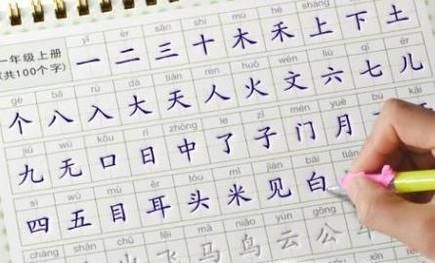 一年级上册
(共100个字)
yī èr sān shí mù hé shàng
一 二 三 十 木 禾 上 下 土
gè bā rù dà tiān rén huǒ wén liù qī ér
个 八 入 大 天 人 火 文 六 七 儿
jiǔ wú kǒu rì zhōng le zǐ mén yuè
九 无 口 日 中 了 子 门 月
sì wǔ mù ěr tóu mǐ jiàn bái tián
四 五 目 耳 头 米 见 白
cháng shān chū fēi mǎ niǎo yún gōng
飞 马 鸟 云 公